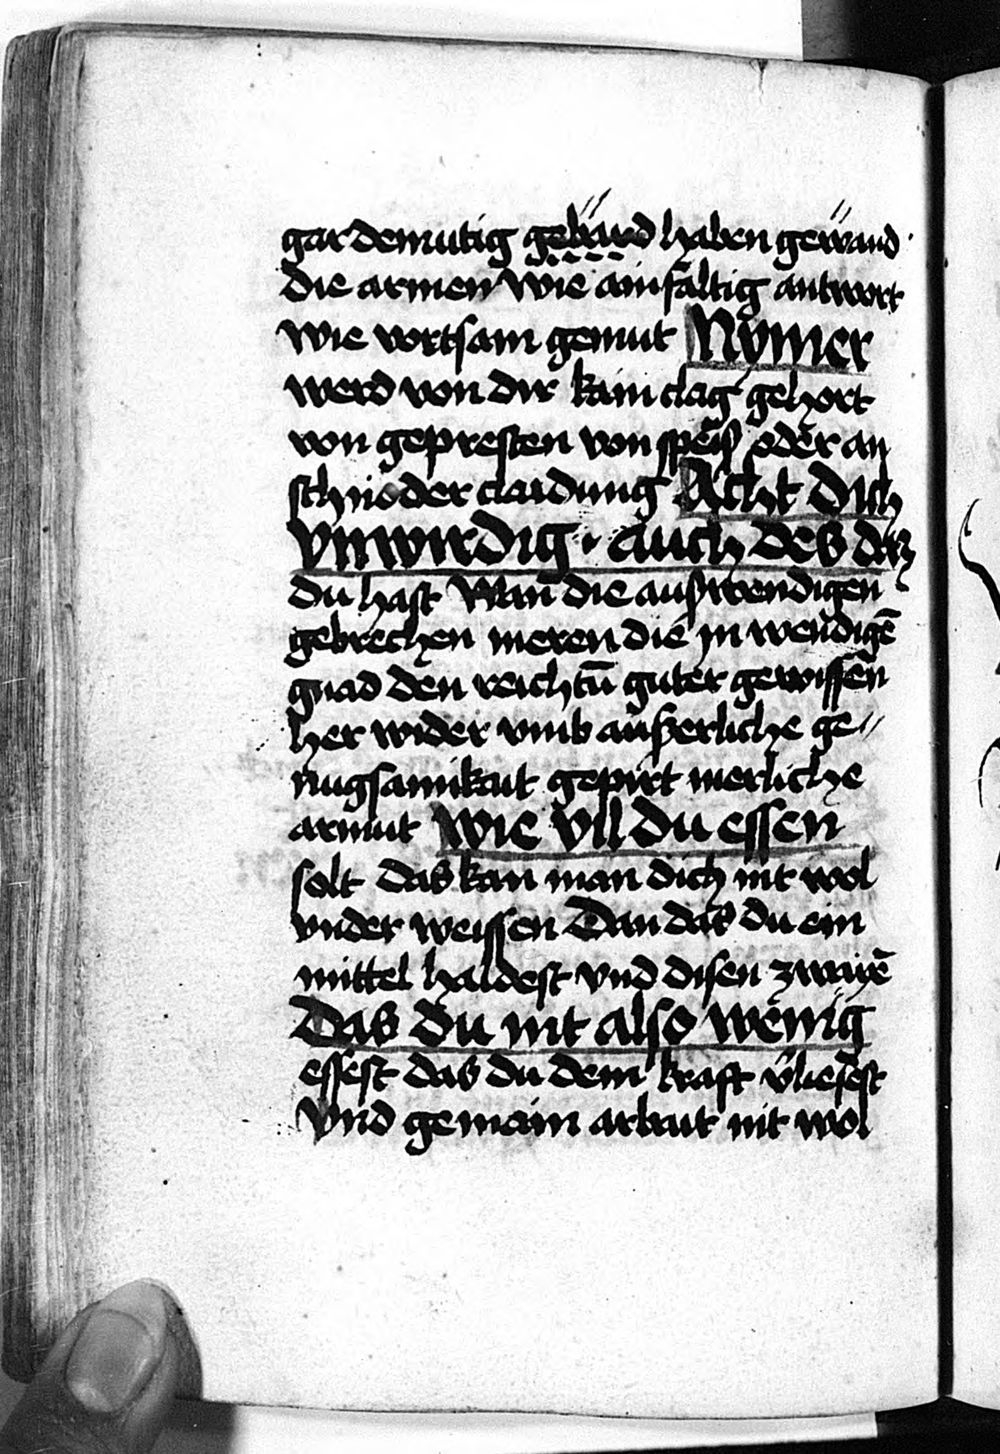 gar demutig gebard haben gewand
die armen wie ainfaltig antwort
wie wortsam gemut Nymer
werd von dir kain clag gehort
von gepresten von speiß oder an
schnöder claidung Acht dich
vnwirdig · auch des daz
du hast Wan die außwendigen
gebrechen meren die in wendigē
gnad den reichtū guter gewissen
her wider vmb außerliche ge〃
nugsamikait gepirt merliche
armut wie vil du essen
solt das kan man dich nit wol
vnder weissen Dan das du ein
mittel haldest vnd disen zwaiē
Das du nit also wenig
essest das du dem kraft v̄liesest
vnd gemain arbait nit wol